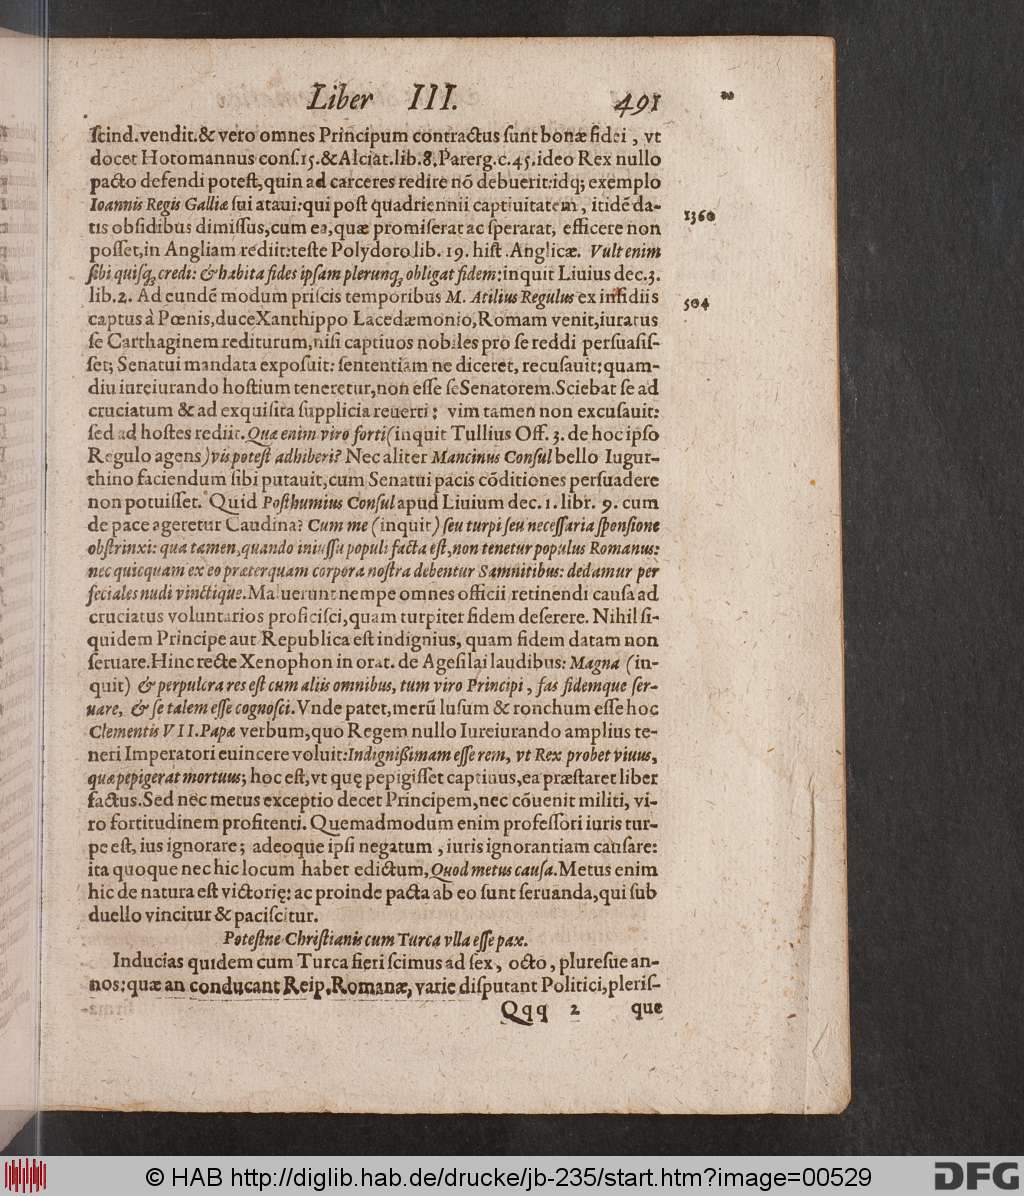 Liber III. 491
ſcind.vendit.& vero omnes Principum contractus ſunt bonæ fidei , vt
docet Hotomannus conſ.15.& Alciat.lib.8.Parerg.c.45.ideo Rex nullo
pacto defendi poteſt,quin ad carceres redire nō debuerit:idq; exemplo
Ioannis Regis Galliæ ſui ataui:qui poſt quadriennii captiuitatem , itidē da-
tis obſidibus dimiſſus,cum ea,quæ promiſerat ac ſperarat, efficere non
1360
poſſet,in Angliam rediit:teſte Polydoro lib. 19. hiſt. Anglicæ. Vult enim
ſibi quiſq; credi: & habita fides ipſam plerunq; obligat fidem:inquit Liuius dec.3.
lib.2. Ad eundē modum priſcis temporibus M. Atilius Regulus ex inſidiis
504
captus à Pœnis,duce Xanthippo Lacedæmonio,Romam venit,iuratus
ſe Carthaginem rediturum,niſi captiuos nobiles pro ſe reddi perſuaſiſ-
ſet; Senatui mandata expoſuit: ſententiam ne diceret, recuſauit:quam-
diu iureiurando hoſtium teneretur,non eſſe ſe Senatorem.Sciebat ſe ad
cruciatum & ad exquiſita ſupplicia reuerti: vim tamen non excuſauit:
ſed ad hoſtes rediit.Quæ enim viro forti(inquit Tullius Off. 3. de hoc ipſo
Regulo agens)vis poteſt adhiberi? Nec aliter Mancinus Conſul bello Iugur-
thino faciendum ſibi putauit,cum Senatui pacis cōditiones perſuadere
non potuiſſet. Quid Poſthumius Conſul apud Liuium dec.1. libr. 9. cum
de pace ageretur Caudina? Cum me (inquit) ſeu turpi ſeu neceſſaria ſponſione
obſtrinxi: qua tamen,quando iniuſſu populi facta eſt,non tenetur populus Romanus:
nec quicquam ex eo præterquam corpora noſtra debentur Samnitibus: dedamur per
feciales nudi vinctique.Maluerunt nempe omnes officii retinendi cauſa ad
cruciatus voluntarios proficiſci,quam turpiter fidem deſerere. Nihil ſi-
quidem Principe aut Republica eſt indignius, quam fidem datam non
ſeruare.Hinc recte Xenophon in orat. de Ageſilai laudibus: Magna (in-
quit) & perpulcra res eſt cum aliis omnibus, tum viro Principi , fas fidemque ſer-
uare, & ſe talem eſſe cognoſci.Vnde patet,merū luſum & ronchum eſſe hoc
Clementis VII.Papæ verbum,quo Regem nullo Iureiurando amplius te-
neri Imperatori euincere voluit:Indignißimam eſſe rem, vt Rex probet viuus,
quæ pepigerat mortuus; hoc eſt,vt quę pepigiſſet captiuus,ea præſtaret liber
factus.Sed nec metus exceptio decet Principem,nec cōuenit militi, vi-
ro fortitudinem profitenti. Quemadmodum enim profeſſori iuris tur-
pe eſt, ius ignorare; adeoque ipſi negatum , iuris ignorantiam cauſare:
ita quoque nec hic locum habet edictum,Quod metus cauſa.Metus enim
hic de natura eſt victorię: ac proinde pacta ab eo ſunt ſeruanda,qui ſub
duello vincitur & paciſcitur.
Poteſtne Chriſtianis cum Turca vlla eſſe pax.
Inducias quidem cum Turca fieri ſcimus ad ſex, octo, plureſue an-
nos:quæ an conducant Reip.Romanæ, varie diſputant Politici,pleriſ-
Qqq 2 que
© HAB http://diglib.hab.de/drucke/jb-235/start.htm?image=00529
DFG